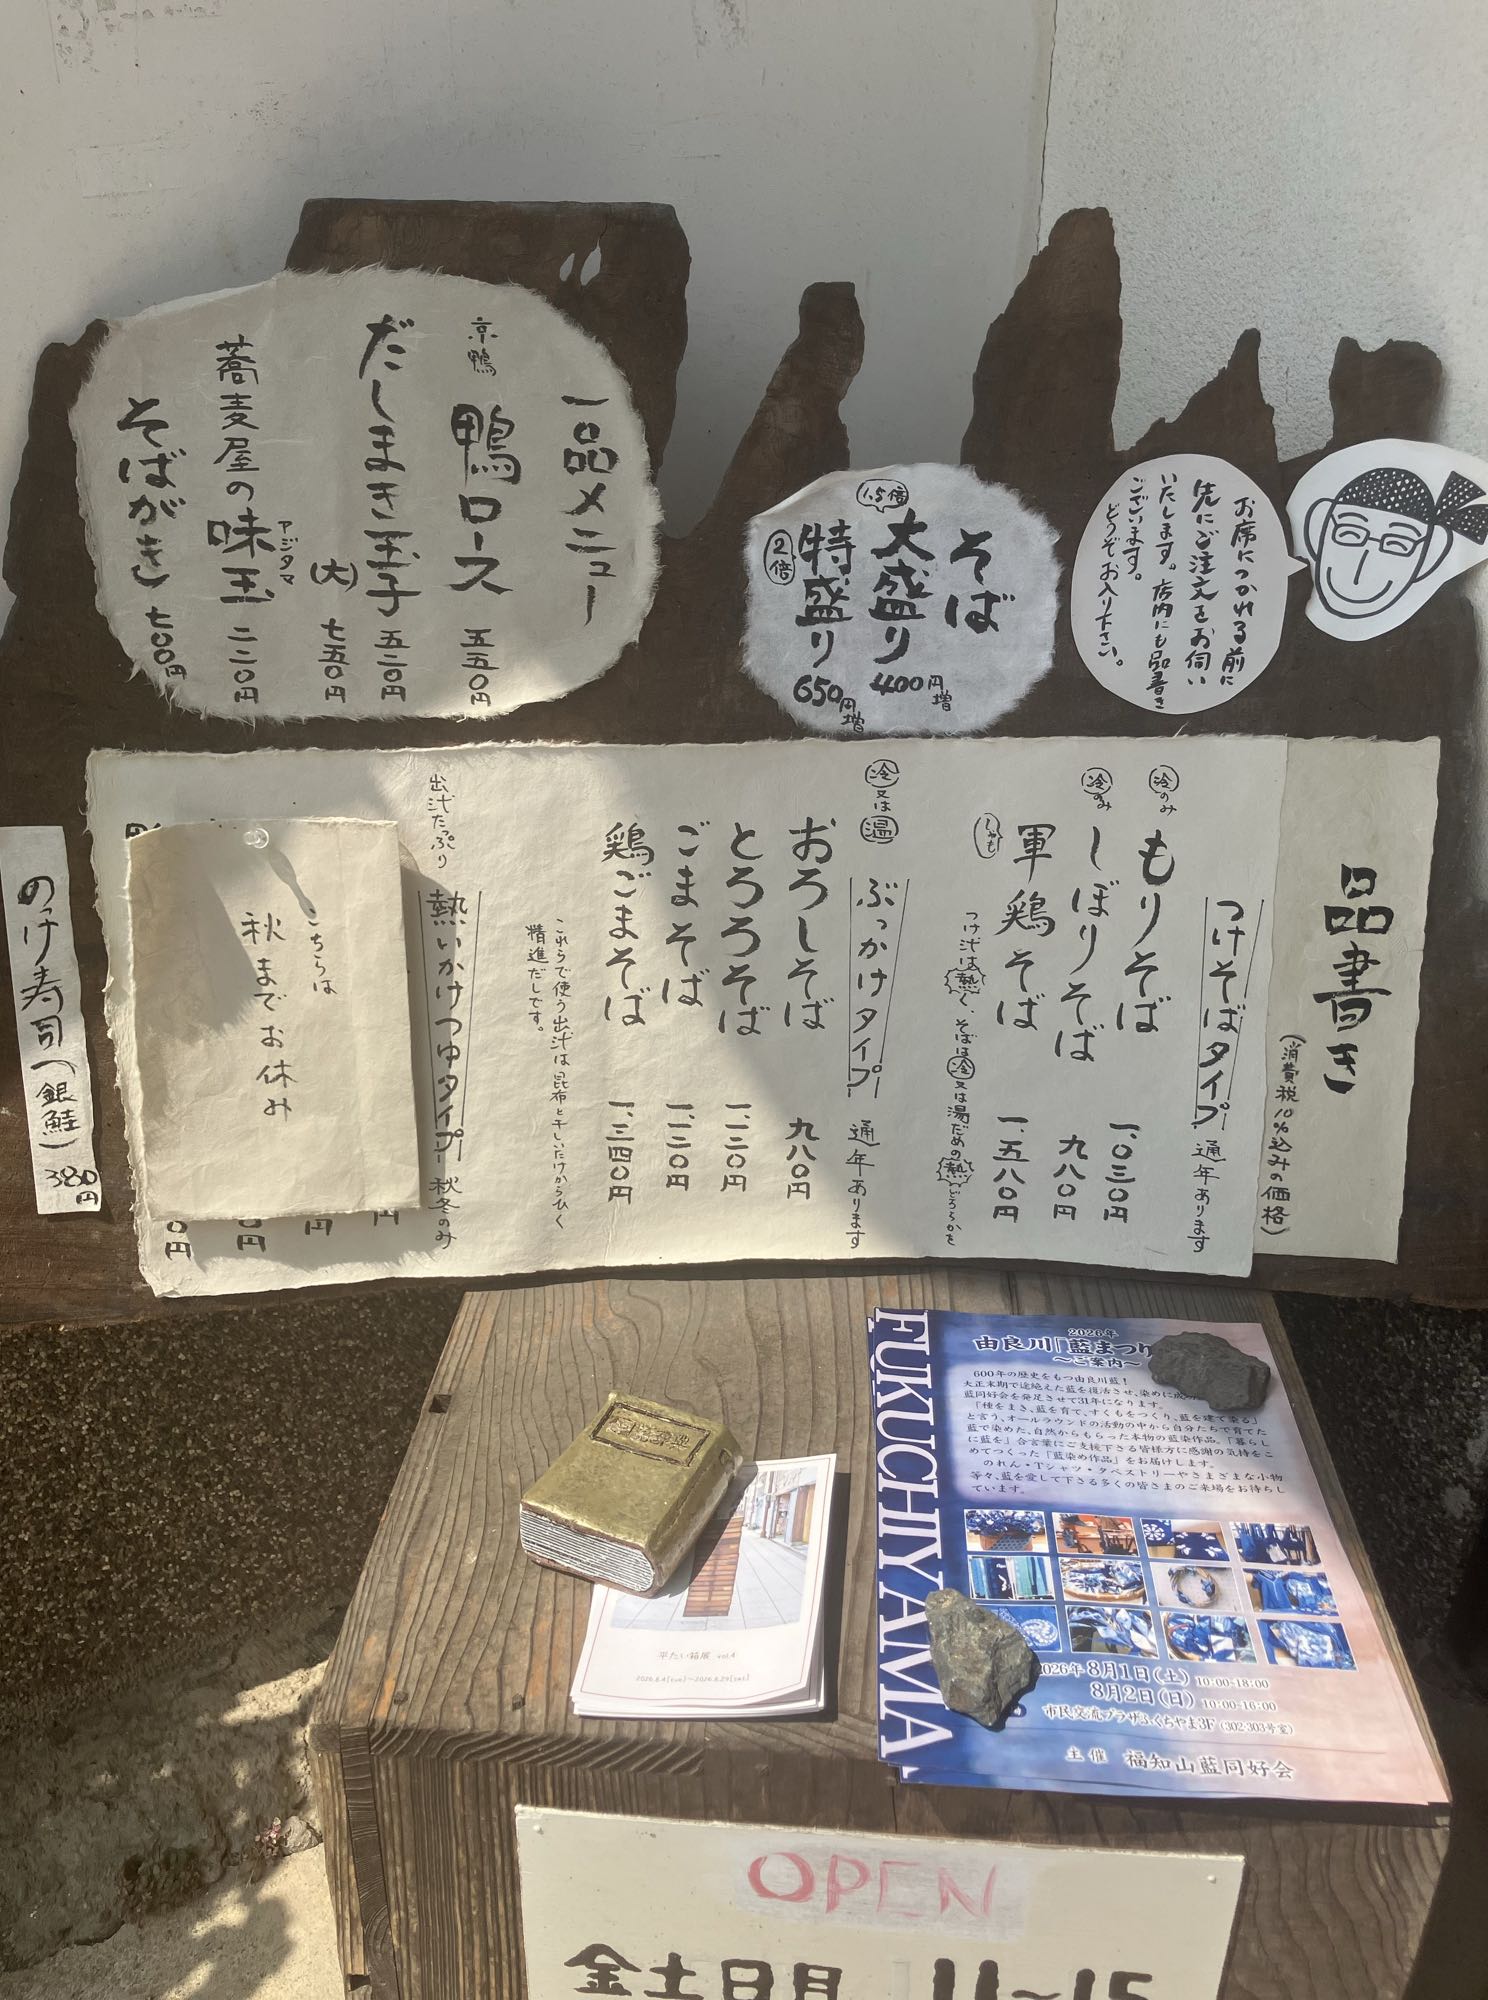 一品メニュー
京鴨
鴨ロース 五五〇円
だしまき玉子 五二〇円
(大) 七五〇円
蕎麦屋の味玉 二二〇円
アジタマ
そばがき 七〇〇円
そば
1.5倍
大盛り 400円増
2倍
特盛り 650円増
お席につかれる前に
先にご注文をお伺い
いたします。店内にも品書き
ございます。
どうぞお入り下さい。
品書き
(消費税10%込みの価格)
つけそばタイプ 通年あります
冷のみ
もりそば 一、〇三〇円
冷のみ
しぼりそば 九八〇円
しゃも
軍鶏そば 一、五八〇円
つけ汁は熱く、そばは冷又は湯だめの熱どちらかを
冷又は温
ぶっかけタイプ 通年あります
おろしそば 九八〇円
とろろそば 一、一二〇円
ごまそば 一、一二〇円
鶏ごまそば 一、三四〇円
これらで使う出汁は昆布と干しいたけからひく
精進だしです。
出汁たっぷり
熱いかけつゆタイプ 秋冬のみ
こちらは
秋までお休み
円
円
〇円
〇円
のっけ寿司(銀鮭) 380円
FUKUCHIYAMA
2026年
由良川「藍まつり
～ご案内～
600年の歴史をもつ由良川藍!
大正末期で途絶えた藍を復活させ、染めに成
藍同好会を発足させて31年になります。
「種をまき、藍を育て、すくもをつくり、藍を建て染る」
と言う、オールラウンドの活動の中から自分たちで育てた
藍で染めた、自然からもらった本物の藍染作品。「暮らし
に藍を」合言葉にご支援下さる皆様方に感謝の気持をこ
めてつくった「藍染め作品」をお届けします。
のれん・Tシャツ・タペストリーやさまざまな小物
等々、藍を愛して下さる多くの皆さまのご来場をお待ちし
ています。
2026年 8月1日(土) 10:00-18:00
8月2日(日) 10:00-16:00
市民交流プラザふくちやま3F (302・303号室)
主催 福知山藍同好会
平たい箱展 vol.4
2026.8.4(tue)～2026.8.29(sat)
OPEN
金土日月 11～15